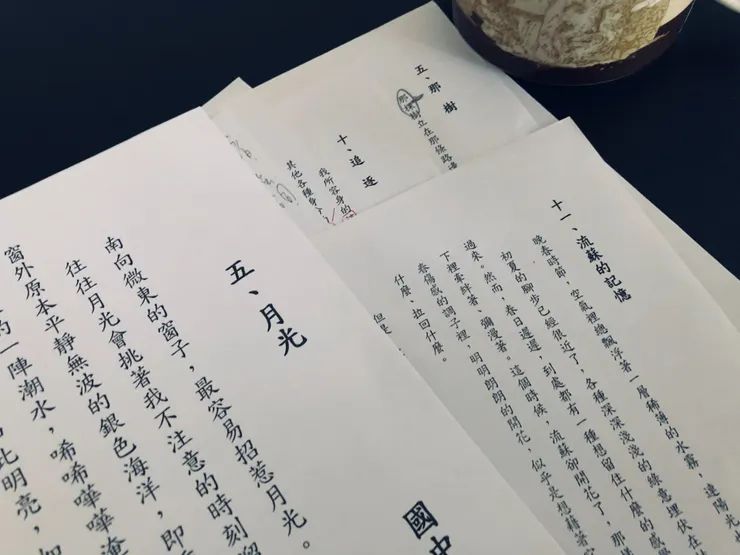 五、那樹
那棵樹立在那條路邊
十、追逐
我所容身的
其他各種身
十一、流蘇的記憶
晚春時節,空氣裡總飄浮著一層稀薄的水霧,連陽光
初夏的腳步已經很近了,各種深深淺淺的綠意埋伏在
過來。然而,春日遲遲,到處都有一種想留住什麼的感
下裡牽絆著、瀰漫著。這個時候,流蘇卻開花了,那
春傷感的調子裡,明明朗朗的開花,似乎是想藉著
什麼、拉回什麼。
但是
國中
五、月光
南向微東的窗子,最容易招惹月光。
往往月光會挑著我不注意的時刻溜
窗外原本平靜無波的銀色海洋,即
的一陣潮水,唏唏嘩嘩淹
此明亮,如